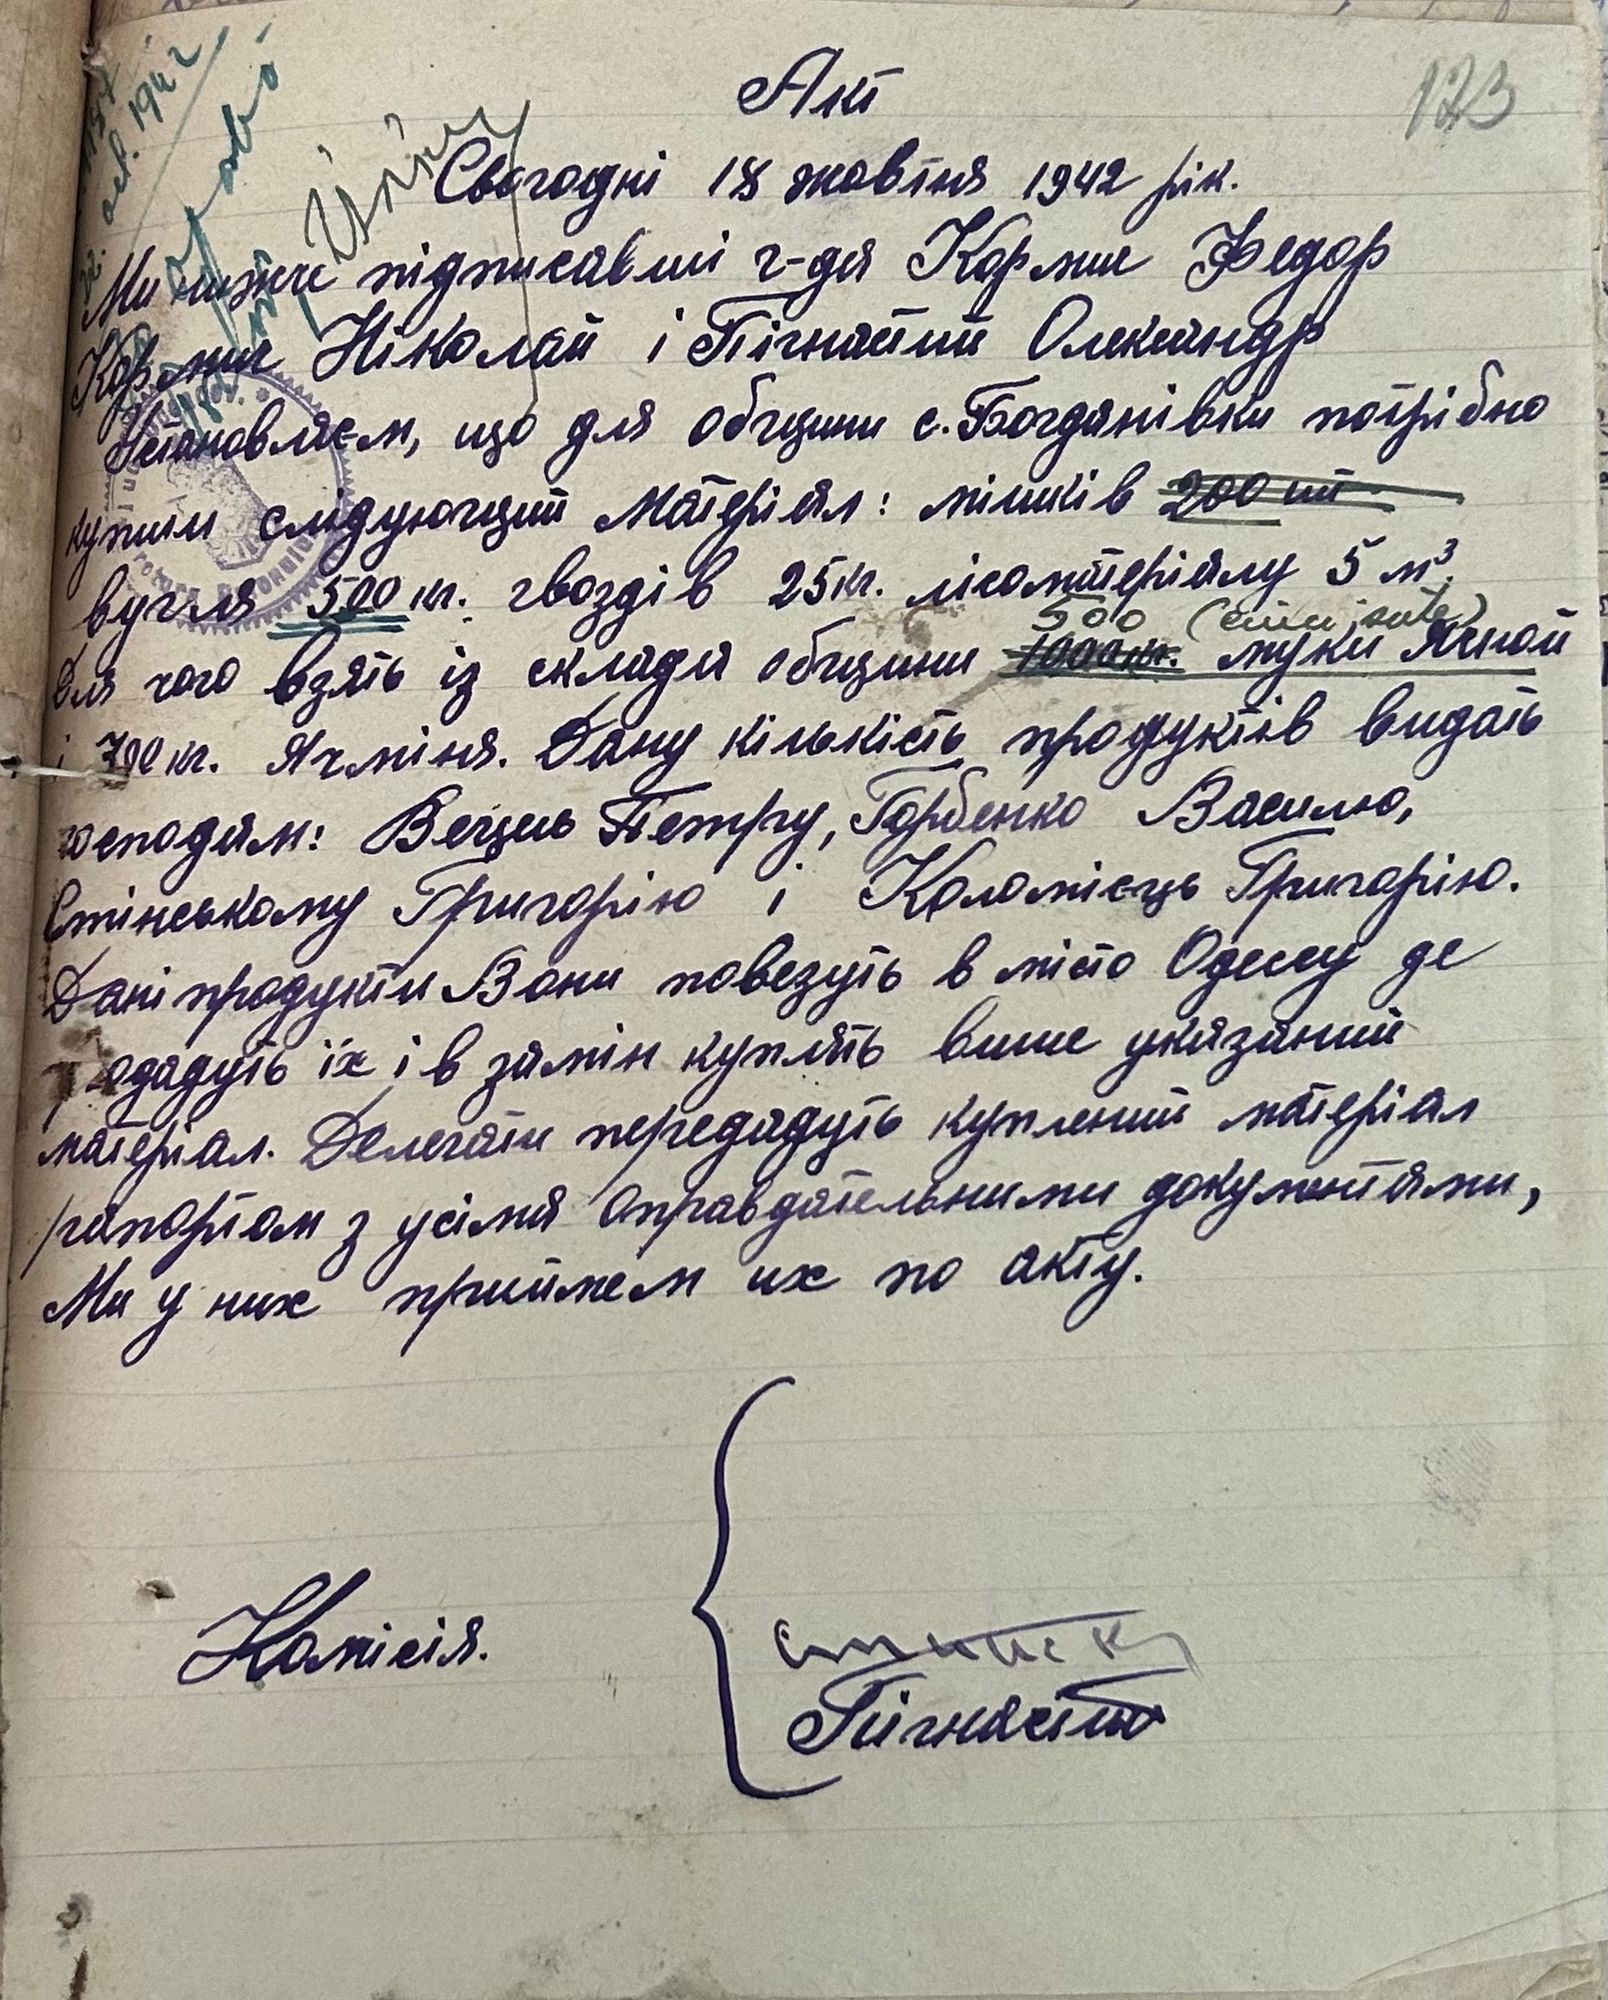 123
oct. 1942
Акт
Сьогодні 18 жовтня 1942 рік.
Ми нижче підписавші г-да Кормич Федор
Кормич Ніколай і Пігнастий Олександр
Установляєм, що для общини с. Богданівки потрібно
купити слідующий матеріял: мішків 200 шт
вугля 500 кг. гвоздів 25 кг. лісоматеріялу 5 м³.
500 (cinci sute)
Для чого взять із склада общини 1000 кг. муки Ячной
і 700 кг. Ячміня. Дану кількість продуктів видать
господам: Вецель Петру, Горбенко Василю,
Стінському Григорію і Коломієць Григорію.
Дані продукти Вони повезуть в місто Одессу де
продадуть їх і в замін куплять више указаний
матеріал. Делегати передадуть куплений матеріал
рапортом з усіма оправдательними документами,
Ми у них приймем их по акту.
Комісія.
Пігнастий